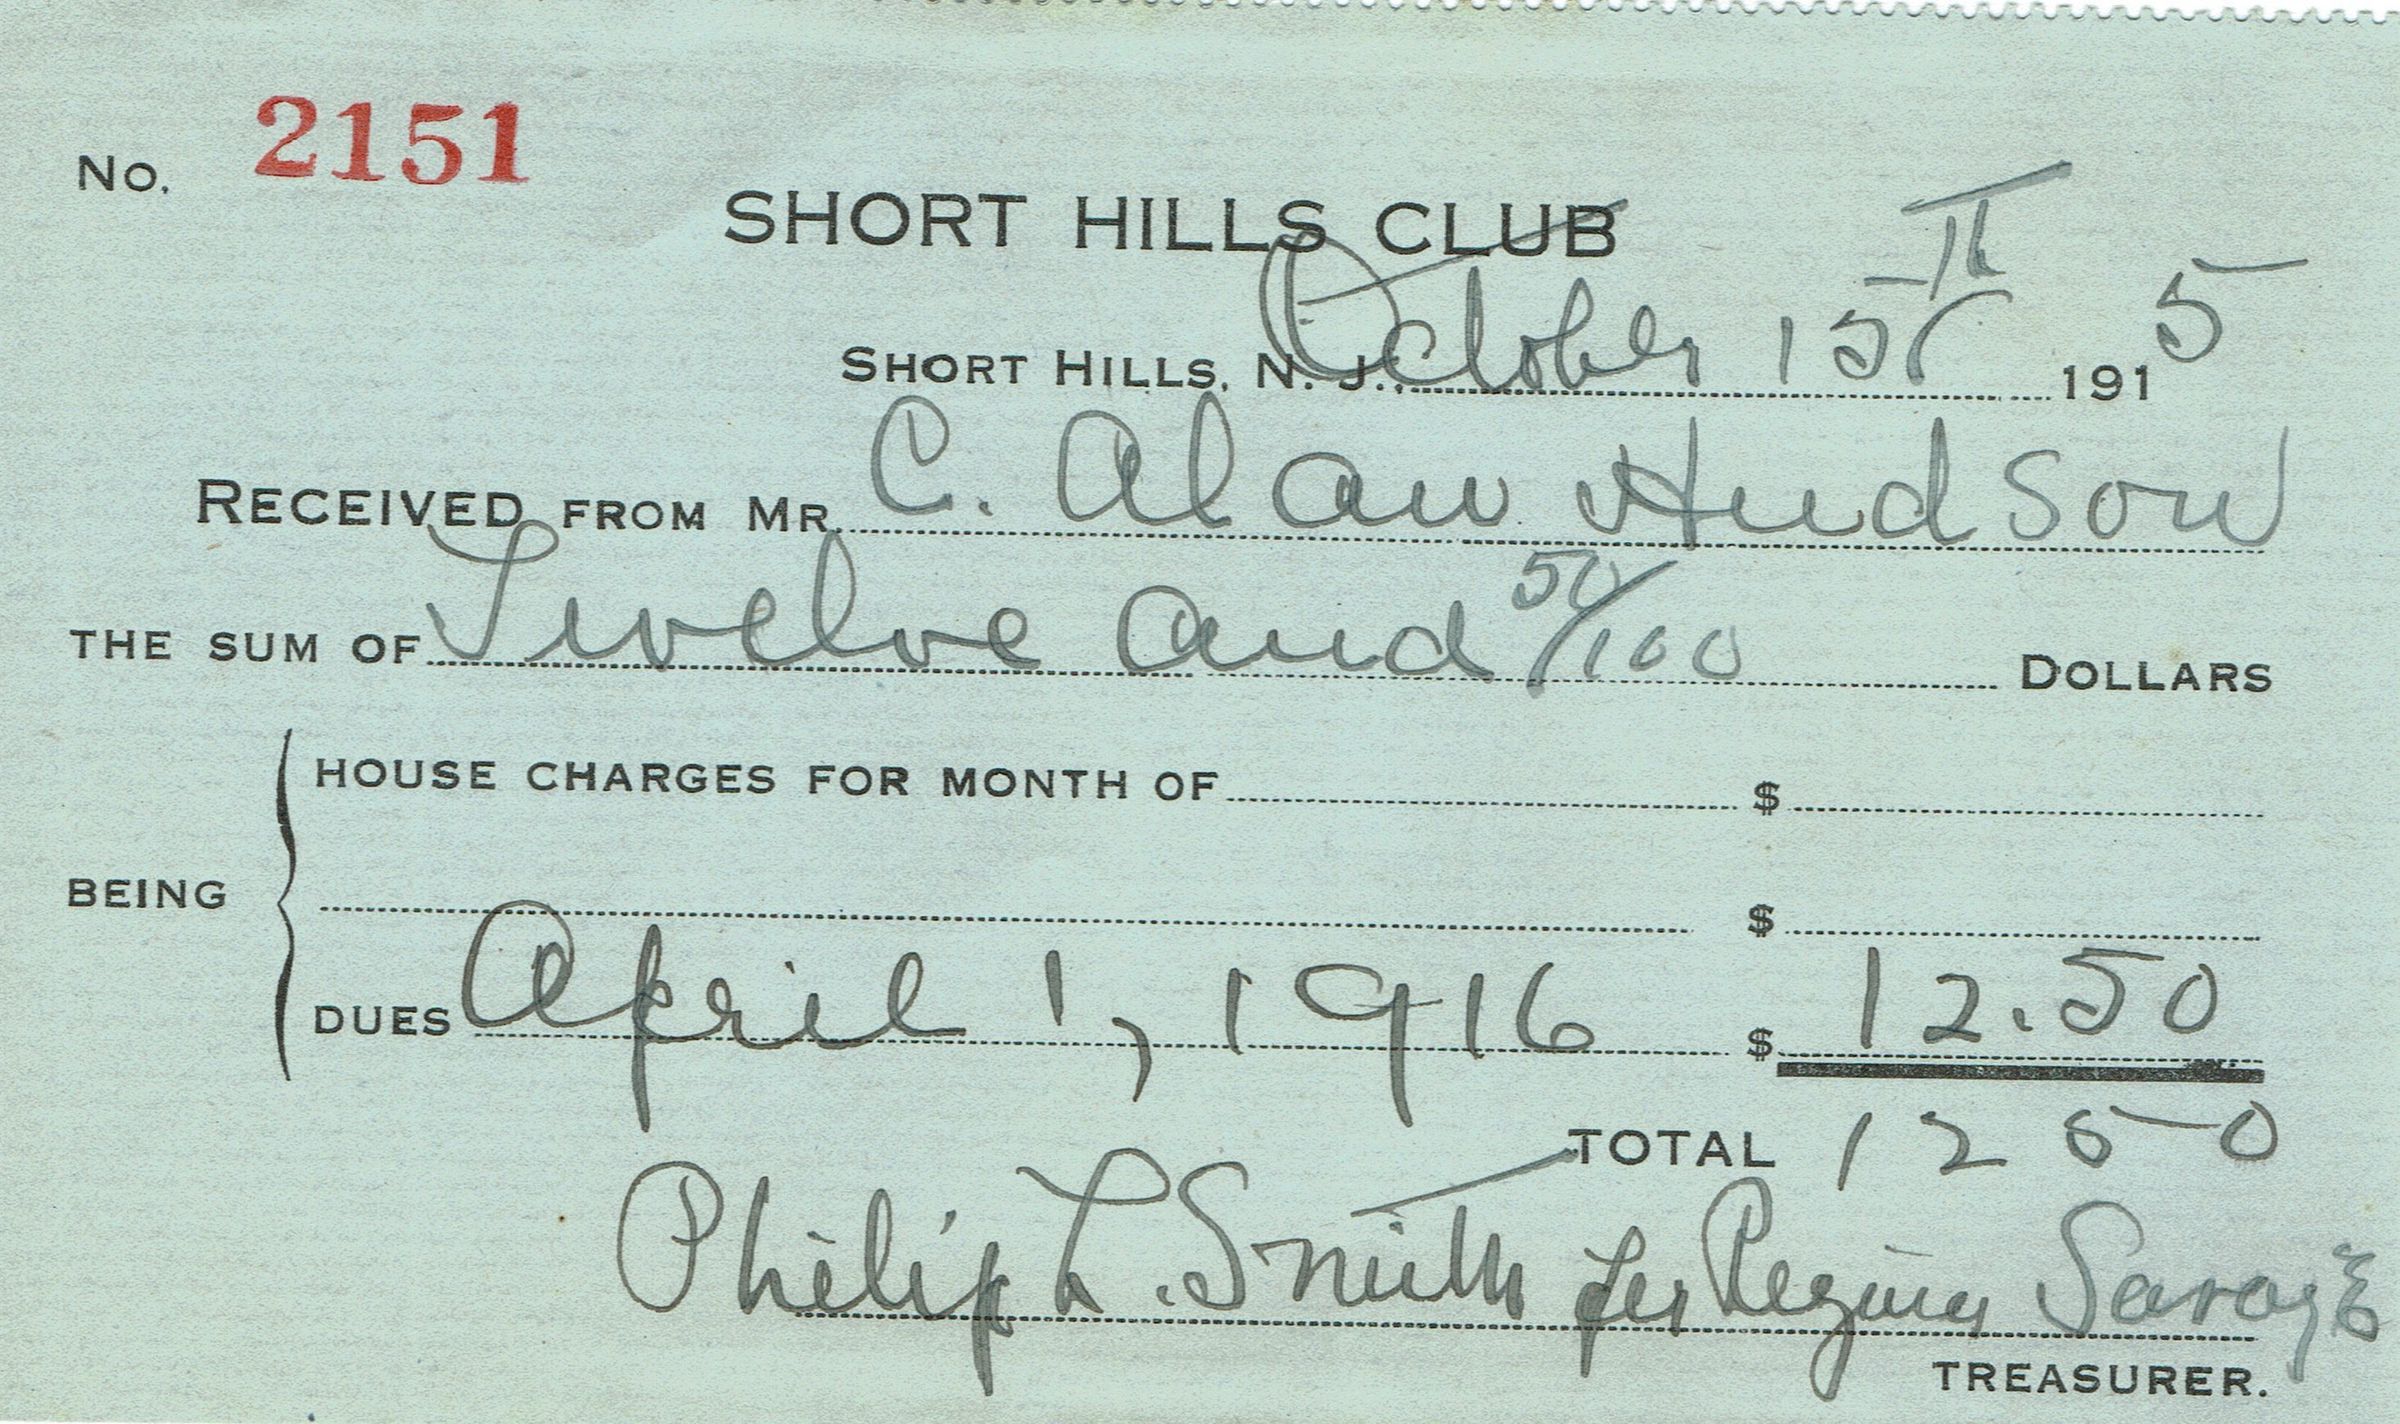 No. 2151
SHORT HILLS CLUB
SHORT HILLS, N. J. October 15th 1915
RECEIVED FROM MR. C. Alan Hudson
THE SUM OF Twelve and 50/100 DOLLARS
HOUSE CHARGES FOR MONTH OF $
BEING $
DUES April 1, 1916 $ 12.50
TOTAL 12 50
Philip L. Smith per Regina Savage
TREASURER.